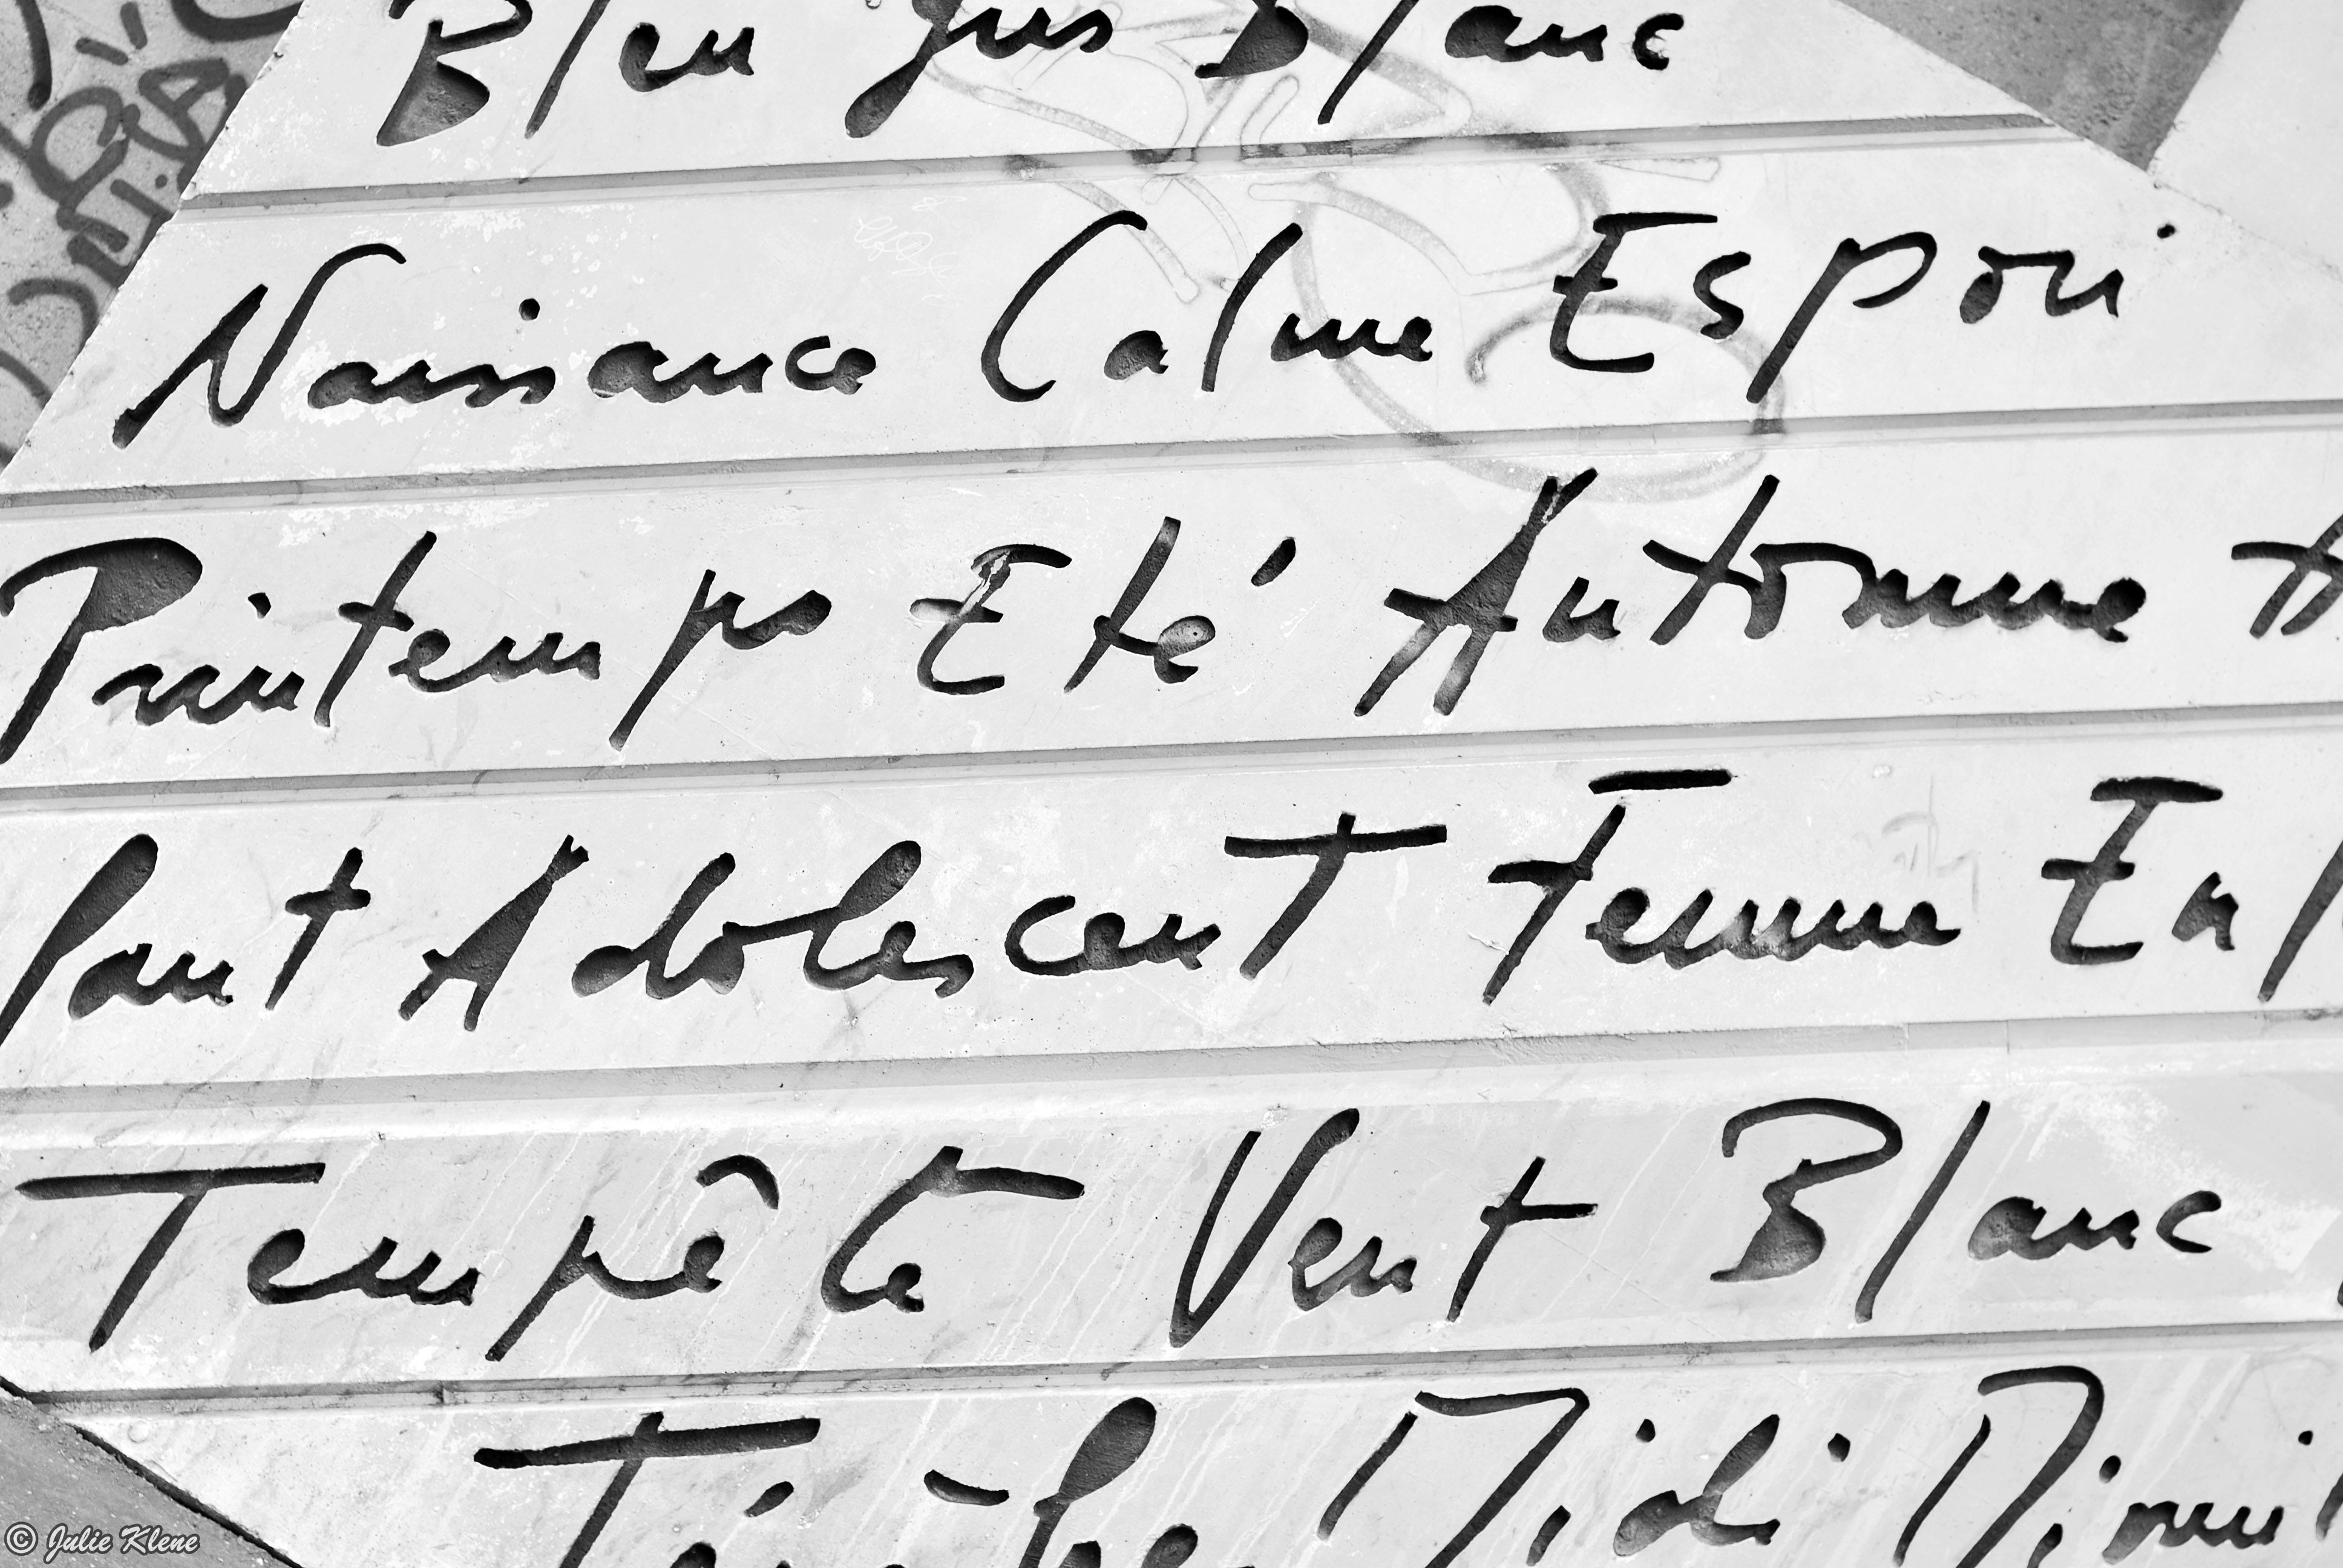 Bleu Gris Blanc
Naissance Calme Espoir
Printemps Eté Automne
fant Adolescent Femme Enf
Tempête Vent Blanc
Midi
© Julie Klene